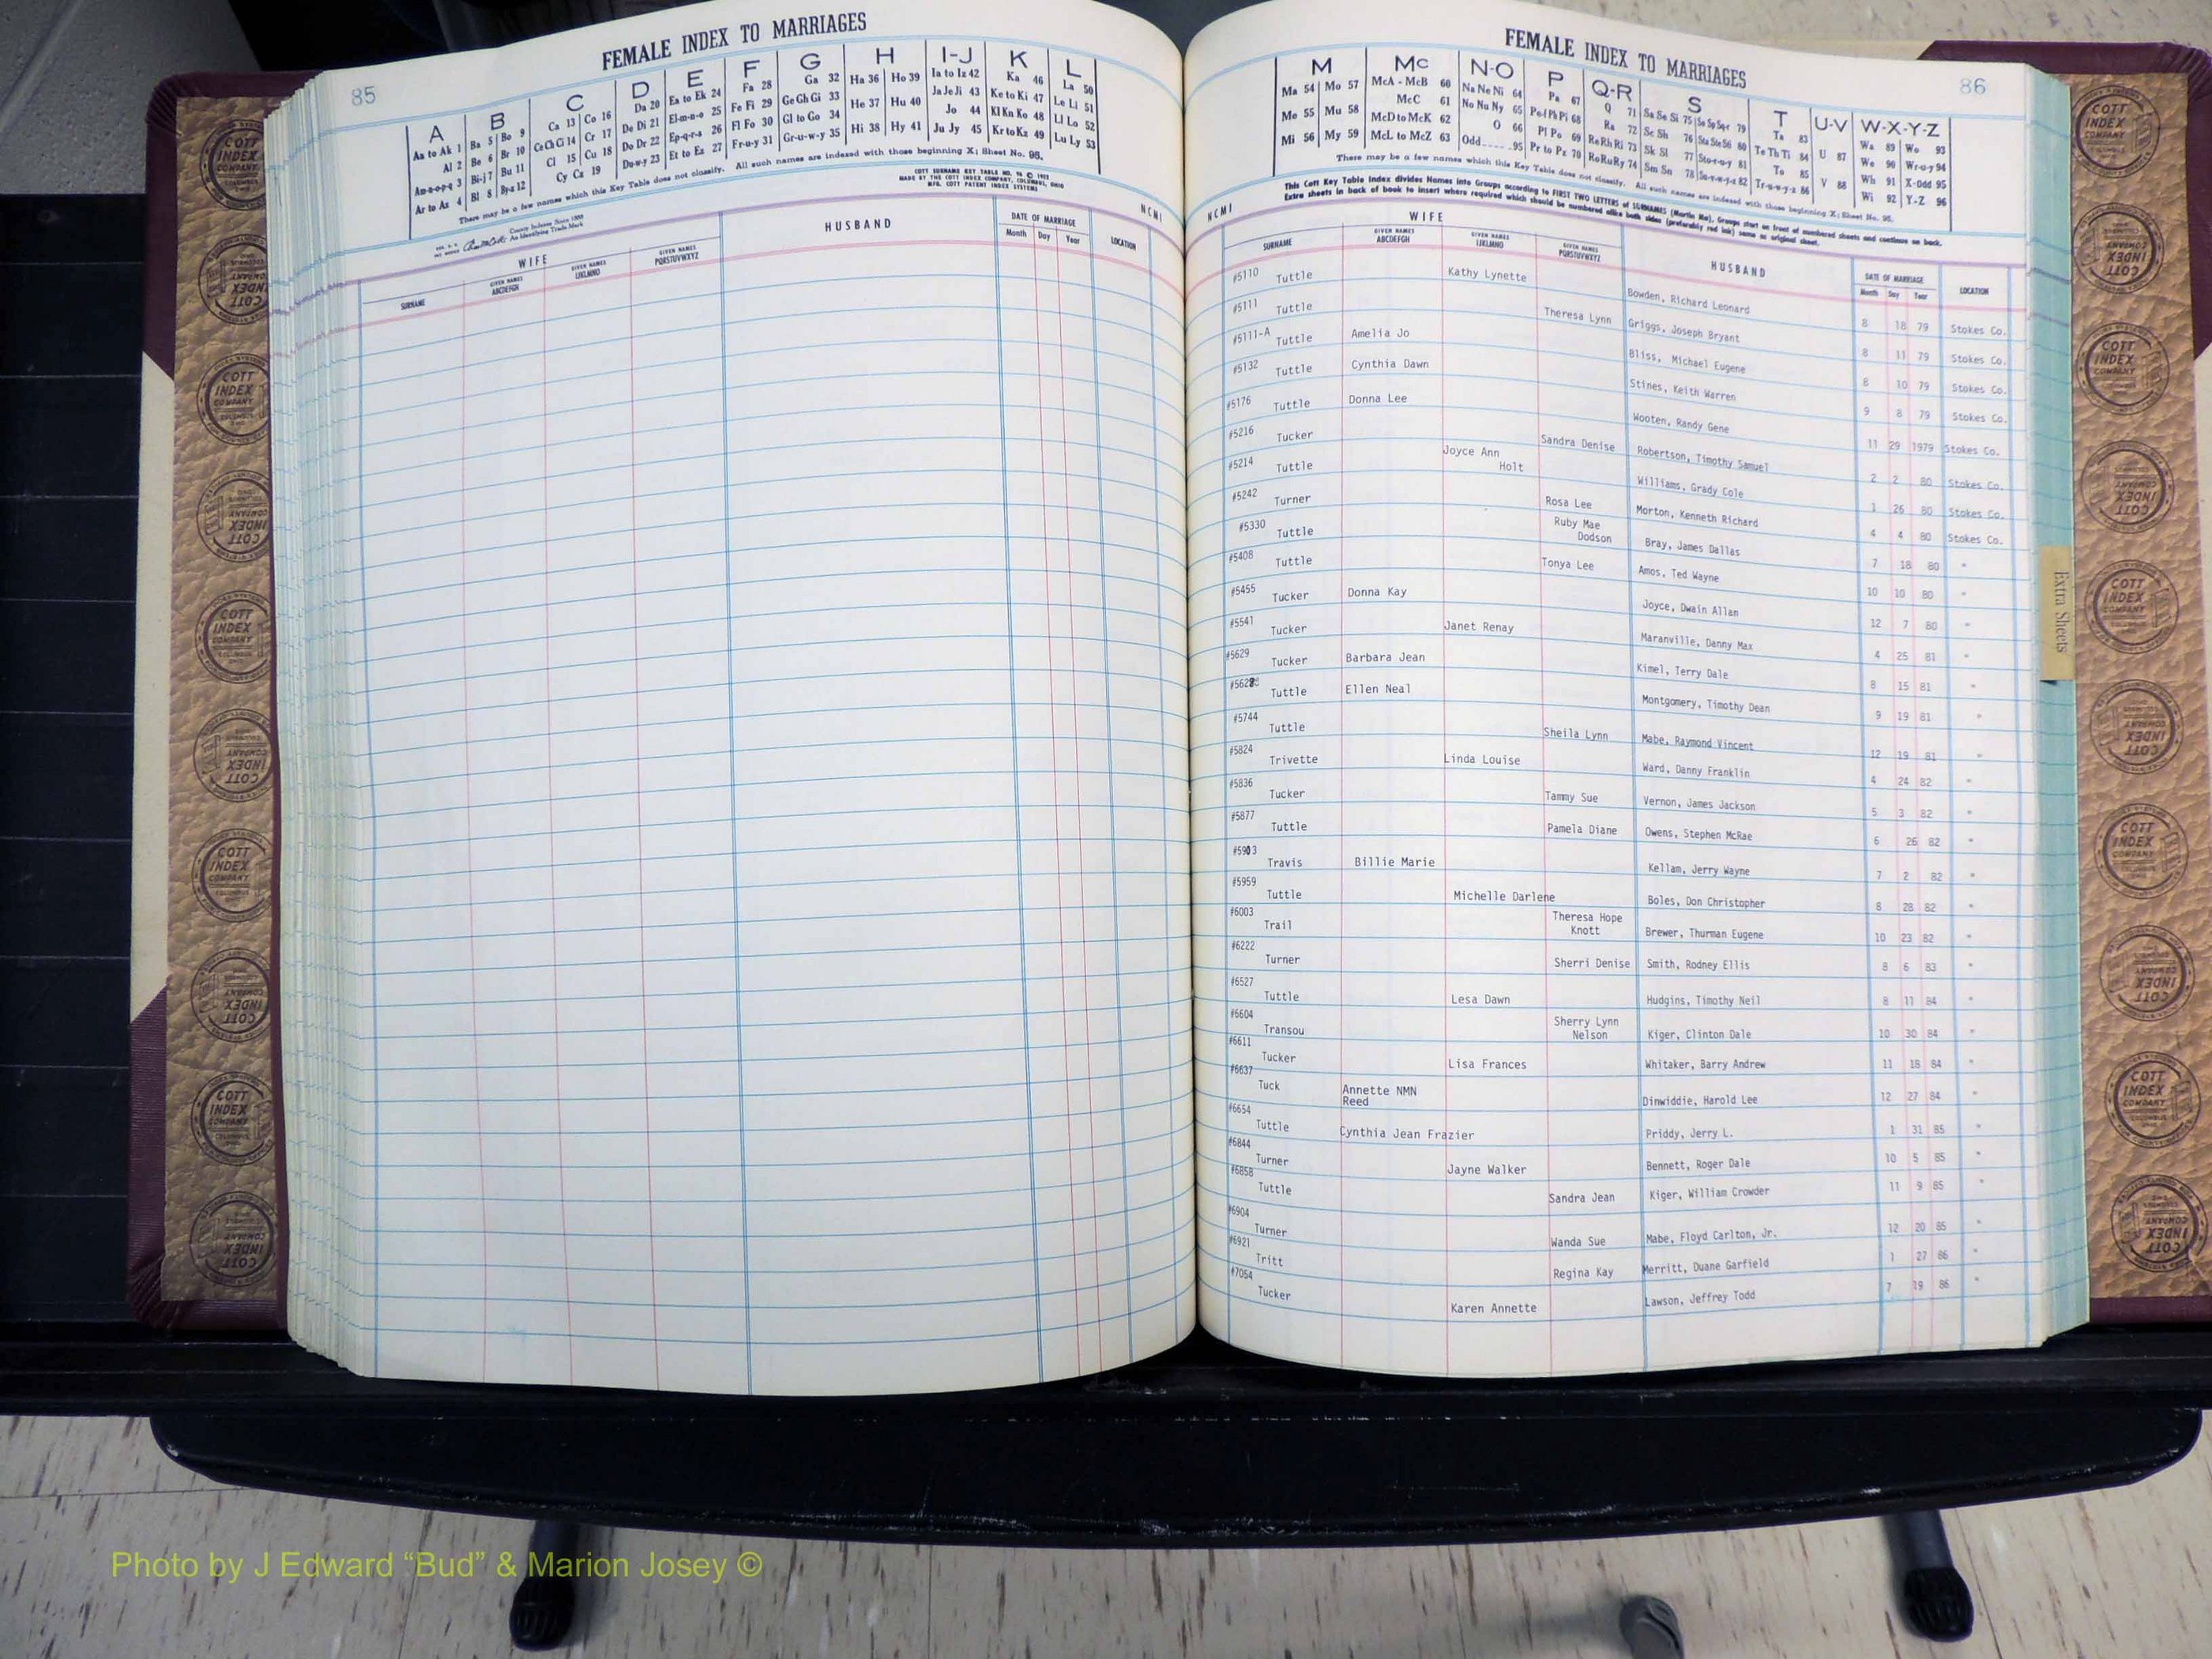 FEMALE INDEX TO MARRIAGES
85
A B C D E F G H I-J K L
Aa to Ak 1 Ba 5 Bo 9 Ca 13 Co 16 Da 20 Ea to Ek 24 Fa 28 Ga 32 Ha 36 Ho 39 Ia to Iz 42 Ka 46 La 50
Al 2 Be 6 Br 10 Ce Ch Ci 14 Cr 17 De Di 21 El-m-n-o 25 Fe Fi 29 Ge Gh Gi 33 He 37 Hu 40 Ja Je Ji 43 Ke to Ki 47 Le Li 51
Am-n-o-p-q 3 Bi-j 7 Bu 11 Cl 15 Cu 18 Do Dr 22 Ep-q-r-s 26 Fl Fo 30 Gl to Go 34 Hi 38 Hy 41 Jo 44 Kl Kn Ko 48 Ll Lo 52
Ar to Az 4 Bl 8 By-z 12 Cy Cz 19 Du-w-y 23 Et to Ez 27 Fr-u-y 31 Gr-u-w-y 35 Ju Jy 45 Kr to Kz 49 Lu Ly 53
There may be a few names which this Key Table does not classify. All such names are indexed with those beginning X; Sheet No. 98.
NCMI
WIFE HUSBAND DATE OF MARRIAGE LOCATION
SURNAME GIVEN NAMES ABCDEFGH GIVEN NAMES IJKLMNO GIVEN NAMES PQRSTUVWXYZ Month Day Year
FEMALE INDEX TO MARRIAGES
86
M Mc N-O P Q-R S T U-V W-X-Y-Z
Ma 54 Mo 57 McA - McB 60 Na Ne Ni 64 Pa 67 Q 71 Sa Se Si 75 Se Sp Sq-r 79 Ta 83 Wa 89 Wo 93
Me 55 Mu 58 McC 61 No Nu Ny 65 Pe-f Ph Pi 68 Ra 72 Sc Sh 76 Sta Ste 80 Te Th Ti 84 U 87 We 90 Wr-u-y 94
Mi 56 My 59 McD to McK 62 O 66 Pl Po 69 Re Rh Ri 73 Sk Sl 77 Sto-r-u-y 81 To 85 V 88 Wh 91 X-Odd 95
McL to McZ 63 Odd 95 Pr to Pz 70 Ro Ru Ry 74 Sm Sn 78 Su-v-w-y-z 82 Tr-u-w-y-z 86 Wi 92 Y-Z 96
There may be a few names which this Key Table does not classify. All such names are indexed with those beginning X; Sheet No. 98.
This Cott Key Table Index divides Names into Groups according to FIRST TWO LETTERS of SURNAMES (Martin Ma), Groups start on front of numbered sheets and continue on back.
Extra sheets in back of book to insert where required which should be numbered alike both sides (preferably red ink) same as original sheet.
NCMI
WIFE HUSBAND DATE OF MARRIAGE LOCATION
SURNAME GIVEN NAMES ABCDEFGH GIVEN NAMES IJKLMNO GIVEN NAMES PQRSTUVWXYZ Month Day Year
#5110 Tuttle Kathy Lynette Bowden, Richard Leonard 8 18 79 Stokes Co.
#5111 Tuttle Theresa Lynn Griggs, Joseph Bryant 8 11 79 Stokes Co.
#5111-A Tuttle Amelia Jo Bliss, Michael Eugene 8 10 79 Stokes Co.
#5132 Tuttle Cynthia Dawn Stines, Keith Warren 9 8 79 Stokes Co.
#5176 Tuttle Donna Lee Wooten, Randy Gene 11 29 1979 Stokes Co.
#5216 Tucker Sandra Denise Robertson, Timothy Samuel 2 2 80 Stokes Co.
#5214 Tuttle Joyce Ann Holt Williams, Grady Cole 1 26 80 Stokes Co.
#5242 Turner Rosa Lee Morton, Kenneth Richard 4 4 80 Stokes Co.
#5330 Tuttle Ruby Mae Dodson Bray, James Dallas 7 18 80 "
#5408 Tuttle Tonya Lee Amos, Ted Wayne 10 10 80 "
#5455 Tucker Donna Kay Joyce, Dwain Allan 12 7 80 "
#5541 Tucker Janet Renay Maranville, Danny Max 4 25 81 "
#5629 Tucker Barbara Jean Kimel, Terry Dale 8 15 81 "
Tuttle Ellen Neal Montgomery, Timothy Dean 9 19 81 "
#5744 Tuttle Sheila Lynn Mabe, Raymond Vincent 12 19 81 "
#5824 Trivette Linda Louise Ward, Danny Franklin 4 24 82 "
#5836 Tucker Tammy Sue Vernon, James Jackson 5 3 82 "
#5877 Tuttle Pamela Diane Owens, Stephen McRae 6 26 82 "
#5903 Travis Billie Marie Kellam, Jerry Wayne 7 2 82 "
#5959 Tuttle Michelle Darlene Boles, Don Christopher 8 28 82 "
#6003 Trail Theresa Hope Knott Brewer, Thurman Eugene 10 23 82 "
#6222 Turner Sherri Denise Smith, Rodney Ellis 8 6 83 "
#6527 Tuttle Lesa Dawn Hudgins, Timothy Neil 8 11 84 "
#6604 Transou Sherry Lynn Nelson Kiger, Clinton Dale 10 30 84 "
#6611 Tucker Lisa Frances Whitaker, Barry Andrew 11 18 84 "
#6637 Tuck Annette NMN Reed Dinwiddie, Harold Lee 12 27 84 "
#6654 Tuttle Cynthia Jean Frazier Priddy, Jerry L. 1 31 85 "
#6844 Turner Jayne Walker Bennett, Roger Dale 10 5 85 "
#6858 Tuttle Sandra Jean Kiger, William Crowder 11 9 85
#6904 Turner Wanda Sue Mabe, Floyd Carlton, Jr. 12 20 85 "
#6921 Tritt Regina Kay Merritt, Duane Garfield 1 27 86 "
#7054 Tucker Karen Annette Lawson, Jeffrey Todd 7 19 86 "
Extra Sheets
COTT INDEX COMPANY
Photo by J Edward “Bud” & Marion Josey ©